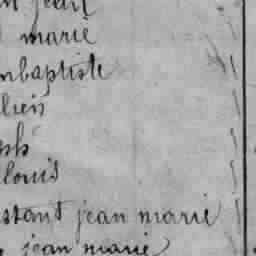 n jean
marie
nbaptiste
lien
seph
louis
stant jean marie
jean marie